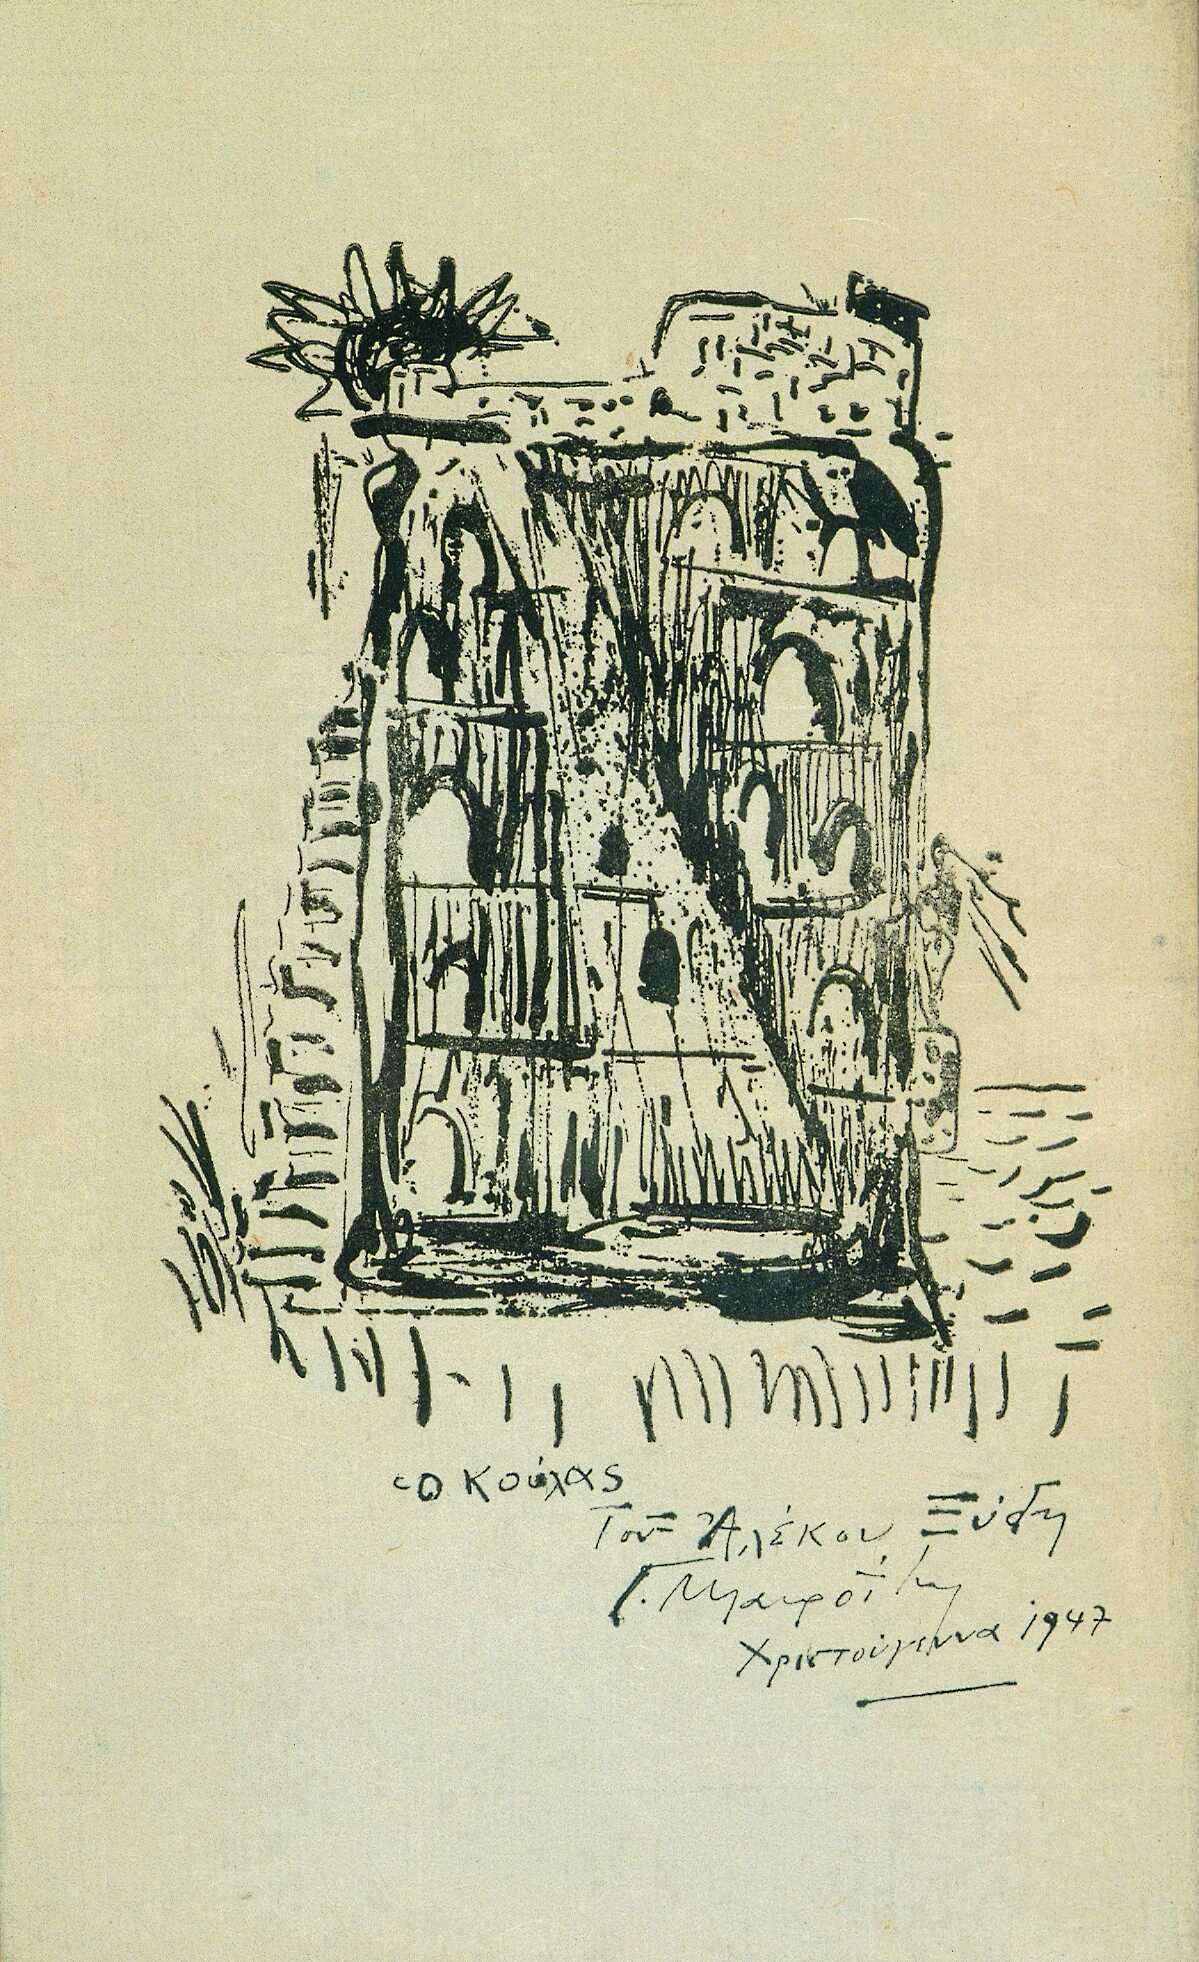 Ὁ Κούλας
Τοῦ Ἀλέκου Ξύδη
Γ. Μαυροΐδης
Χριστούγεννα 1947